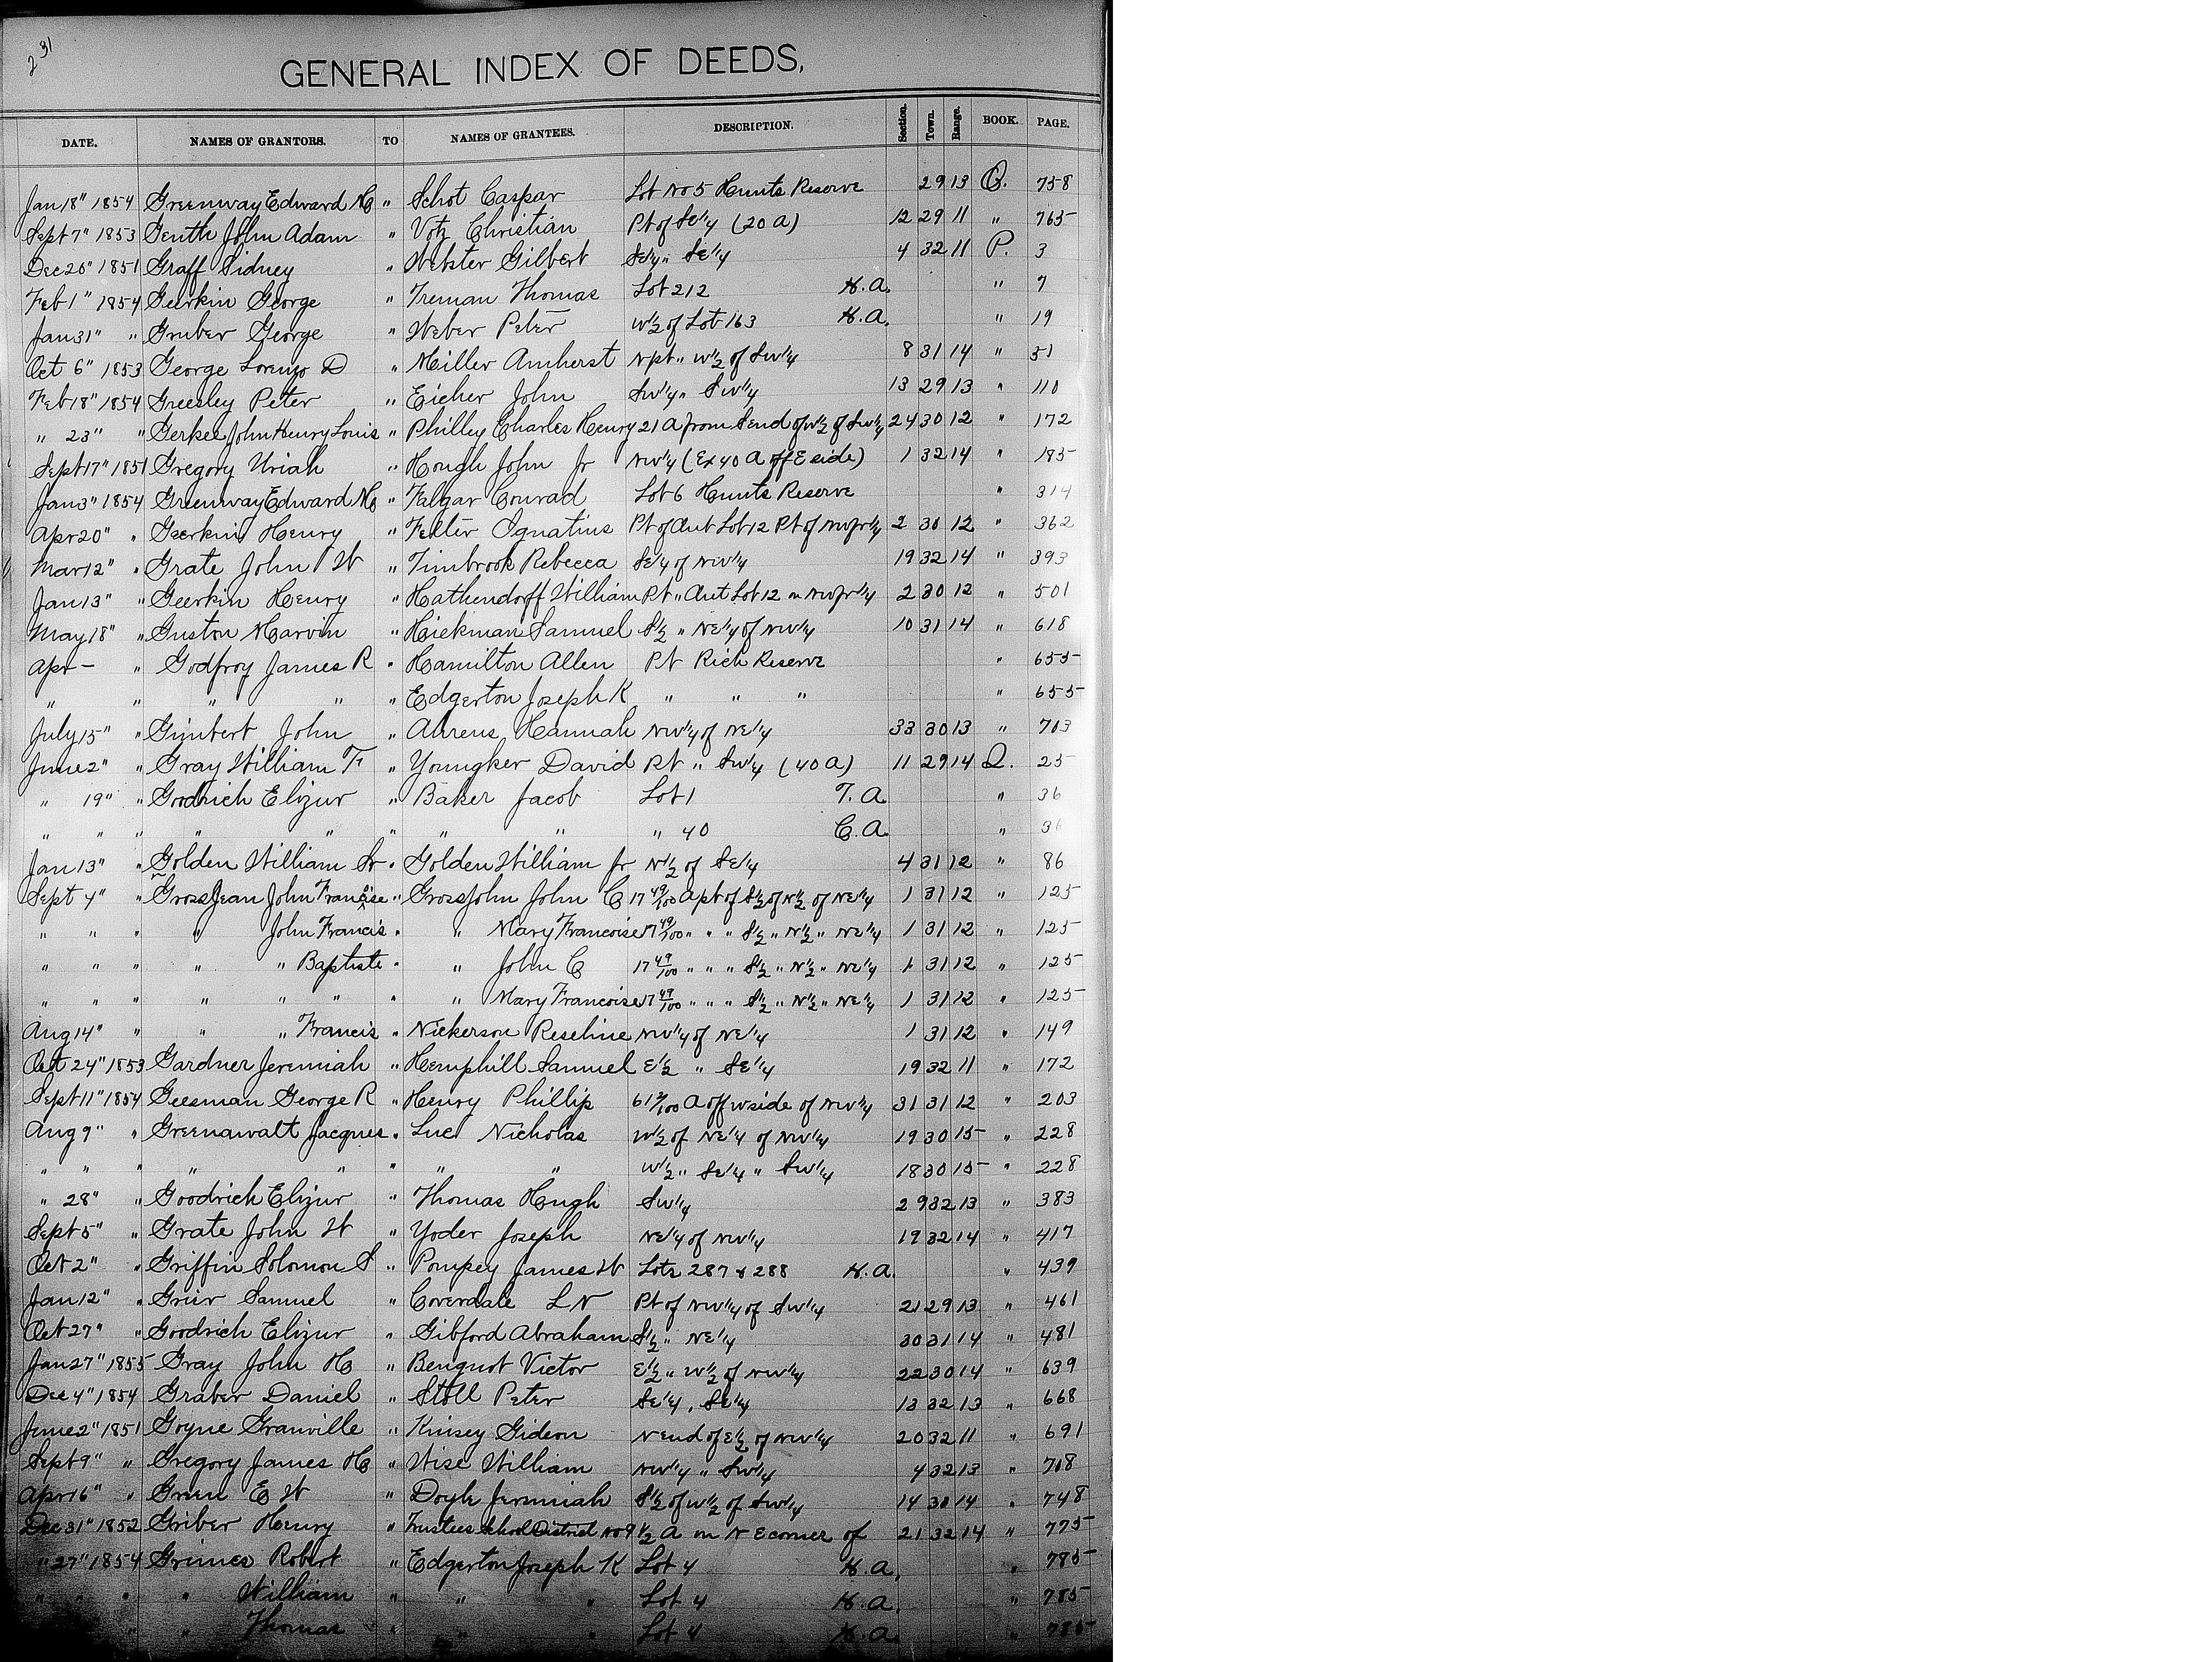 231
GENERAL INDEX OF DEEDS,
DATE. NAMES OF GRANTORS. TO NAMES OF GRANTEES. DESCRIPTION. Section. Town. Range. BOOK. PAGE.
Jan 18" 1854 Greenway Edward M " Schot Caspar Lot No 5 Hunts Reserve 29 13 O. 758
Sept 7" 1853 Genth John Adam " Votz Christian Pt of Se 1/4 (20 A) 12 29 11 " 765
Dec 26" 1851 Graff Sidney " Webster Gilbert Se 1/4 " Se 1/4 4 32 11 P. 3
Feb 1" 1854 Geerkin George " Treman Thomas Lot 212 H.A. " 7
Jan 31" " Gruber George " Weber Peter W 1/2 of Lot 163 H.A. " 19
Oct 6" 1853 George Lorenzo D " Miller Amherst N pt " W 1/2 of Sw 1/4 8 31 14 " 51
Feb 18" 1854 Greesley Peter " Eicher John Sw 1/4 " Sw 1/4 13 29 13 " 110
" 23" " Gerkee John Henry Louis " Philley Charles Henry 21 A from S end of W 1/2 of Sw 1/4 24 30 12 " 172
Sept 17" 1851 Gregory Uriah " Hough John Jr Nw 1/4 (Ex 40 A off E side) 1 32 14 " 185
Jan 3" 1854 Greenway Edward M " Falgar Conrad Lot 6 Hunts Reserve " 314
Apr 20" " Geerkin Henry " Felter Ignatius Pt of Out Lot 12 Pt of Nw fr 1/4 2 30 12 " 362
Mar 12" " Grate John W " Timbrook Rebecca Se 1/4 of Nw 1/4 19 32 14 " 393
Jan 13" " Geerkin Henry " Hathendorff William Pt " Out Lot 12 " Nw fr 1/4 2 30 12 " 501
May 18" " Guston Marvin " Hickman Samuel S 1/2 " NE 1/4 of NW 1/4 10 31 14 " 618
Apr — " Godfroy James R " Hamilton Allen Pt Rich Reserve " 655
" " " " " Edgerton Joseph K " " " " 655
July 15" " Gimbert John " Ahrens Hannah Nw 1/4 of NE 1/4 33 30 13 " 703
June 2" " Gray William F " Youngker David Pt " Sw 1/4 (40 A) 11 29 14 Q. 25
" 19" " Goodrich Elizur " Baker Jacob Lot 1 T.A. " 36
" " " " " " " " " 40 C.A. " 36
Jan 13" " Golden William Sr " Golden William Jr N 1/2 of Se 1/4 4 31 12 " 86
Sept 4" " GrossJean John Francise " GrossJohn John C 17 49/100 A pt of S 1/2 of N 1/2 of NE 1/4 1 31 12 " 125
" " " " John Francis " " Mary Francoise 17 49/100 " " " S 1/2 " N 1/2 " NE 1/4 1 31 12 " 125
" " " " " Baptiste " " John C 17 49/100 " " " S 1/2 " N 1/2 " NE 1/4 1 31 12 " 125
" " " " " " " " Mary Francoise 17 49/100 " " " S 1/2 " N 1/2 " NE 1/4 1 31 12 " 125
Aug 14" " " " Francis " Nickerson Roseline Nw 1/4 of NE 1/4 1 31 12 " 149
Oct 24" 1853 Gardner Jeremiah " Hemphill Samuel E 1/2 " SE 1/4 19 32 11 " 172
Sept 11" 1854 Geesman George R " Henry Phillip A off W side of NW 1/4 31 31 12 " 203
Aug 9" " Greenawalt Jacques " Luce Nicholas W 1/2 of NE 1/4 of NW 1/4 19 30 15 " 228
" " " " " " " " W 1/2 " Se 1/4 " Sw 1/4 18 30 15 " 228
" 28" " Goodrich Elizur " Thomas Hugh Sw 1/4 29 32 13 " 383
Sept 5" " Grate John W " Yoder Joseph NE 1/4 of NW 1/4 19 32 14 " 417
Oct 2" " Griffin Solomon S " Pompey James W Lots 287 & 288 H.A. " 439
Jan 12" " Grier Samuel " Coverdale L N Pt of Nw 1/4 of Sw 1/4 21 29 13 " 461
Oct 27" " Goodrich Elizur " Gibford Abraham S 1/2 " NE 1/4 30 31 14 " 481
Jan 27" 1855 Gray John H " Benquot Victor E 1/2 " W 1/2 of NW 1/4 22 30 14 " 639
Dec 4" 1854 Graber Daniel " Stoll Peter Se 1/4 " Se 1/4 13 32 13 " 668
June 2" 1851 Goyne Granville " Kinsey Gideon N end of E 1/2 of NW 1/4 20 32 11 " 691
Sept 9" " Gregory James H " Wise William NW 1/4 " Sw 1/4 4 32 13 " 708
Apr 16" " Green E W " Doyle Jeremiah S 1/2 of W 1/2 of Sw 1/4 14 30 14 " 748
Dec 31" 1852 Griber Henry " Trustees School District No 9 1/2 A in N E corner of 21 32 14 " 775
" 27" 1854 Grimes Robert " Edgerton Joseph K Lot 4 H.A. " 785
" " " " William " " " Lot 4 H.A. " 785
" " Thomas " " " Lot 4 H.A. " 785